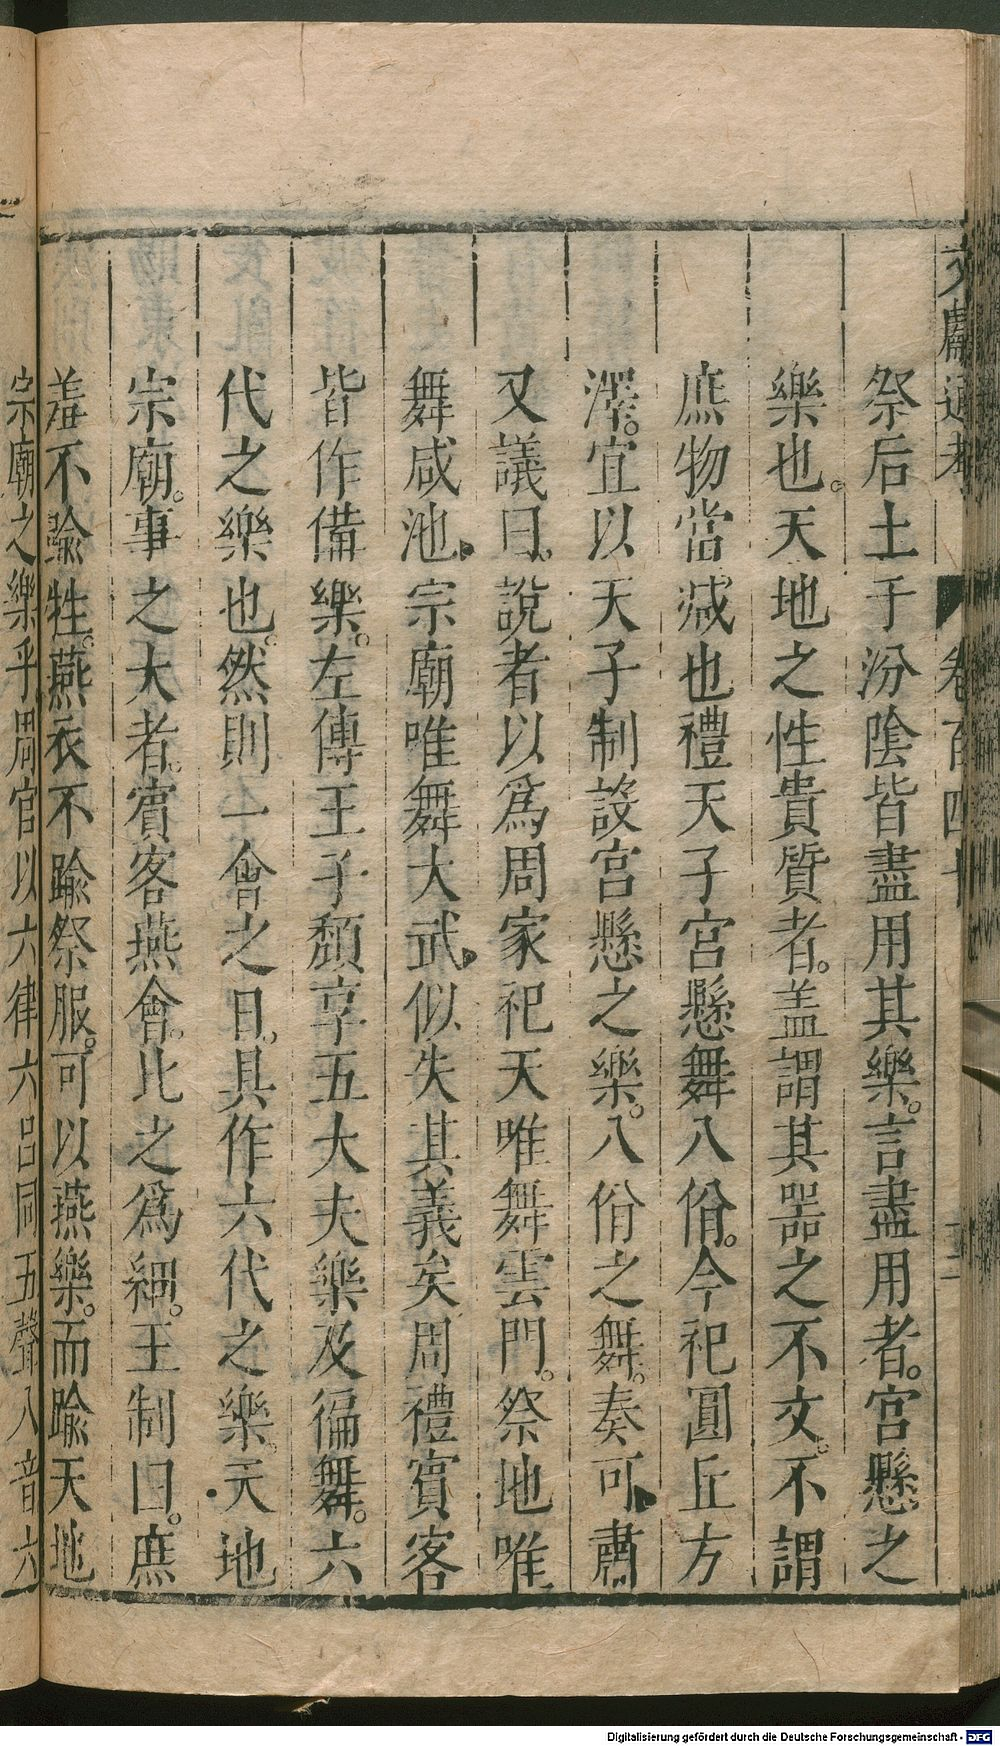 文獻通考 卷百四十
祭后土于汾陰皆盡用其樂。言盡用者。宮懸之
樂也。天地之性貴質者。盖謂其噐之不文。不謂
庶物當减也禮天子宮懸舞八佾。今祀圓丘方
澤。宜以天子制設宮懸之樂。八佾之舞。奏可肅
又議曰。說者以爲周家祀天唯舞雲門。祭地唯
舞咸池。宗廟唯舞大武。似失其義矣周禮賔客
皆作備樂。左傳王子頽享五大夫樂及徧舞。六
代之樂也。然則一會之日。具作六代之樂。天地
宗廟。事之大者。賔客燕會。比之爲細。王制曰。庶
羞不踰牲。燕衣不踰祭服。可以燕樂。而踰天地
宗廟之樂乎周官以六律六吕同五聲八音六
Digitalisierung gefördert durch die Deutsche Forschungsgemeinschaft - DFG